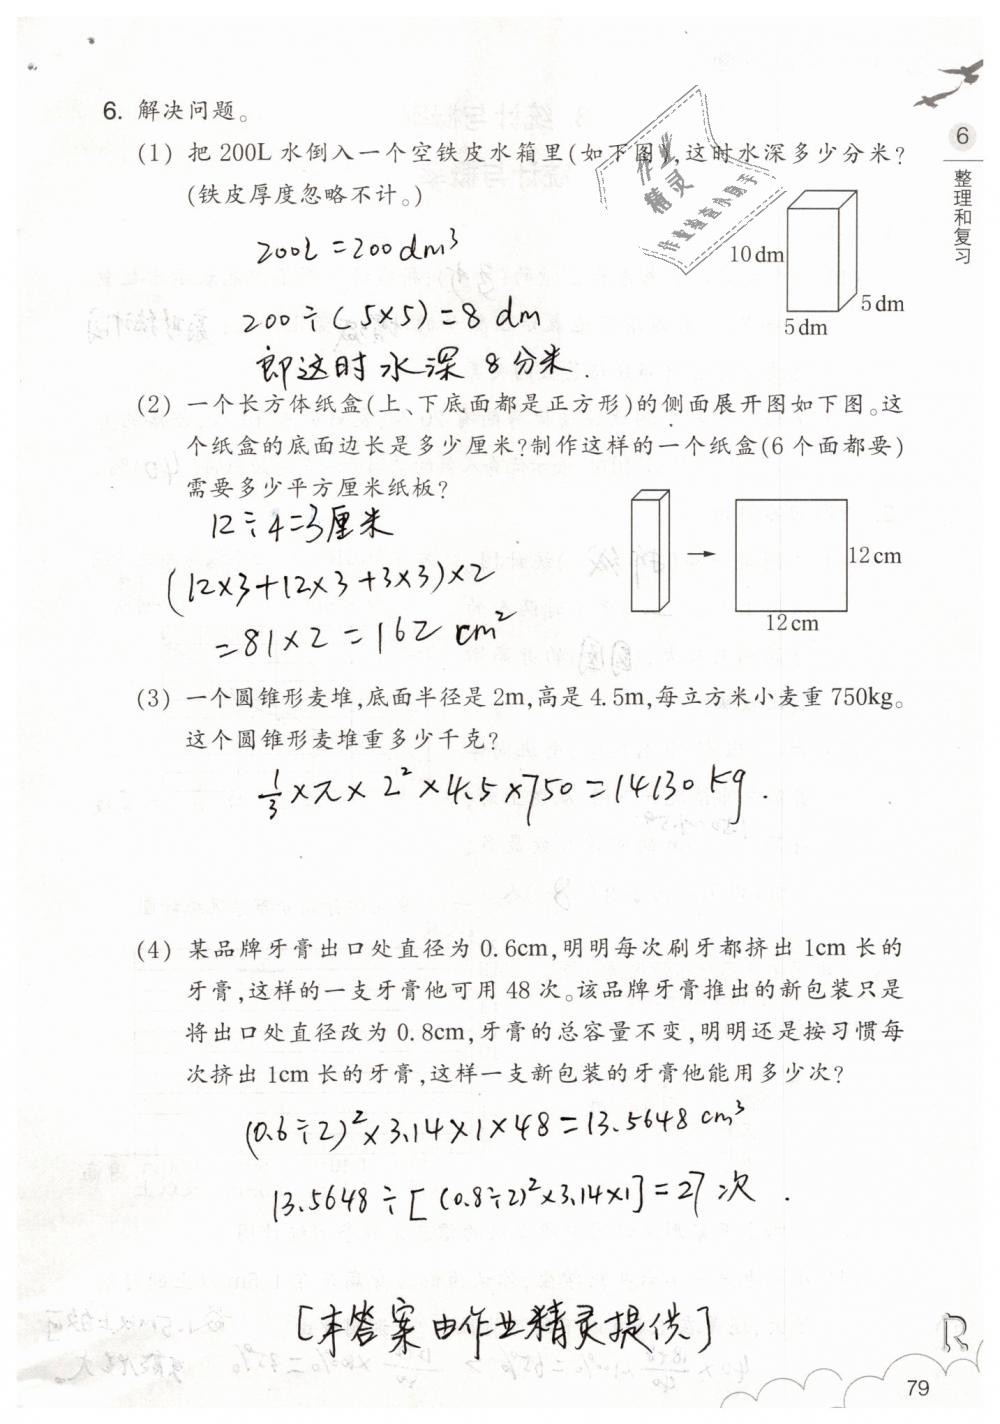 6
整理和复习
6. 解决问题。
(1) 把 200L 水倒入一个空铁皮水箱里(如下图),这时水深多少分米?
(铁皮厚度忽略不计。)
作业
精灵
作业检查小助手
10dm
5dm
5dm
200L = 200dm³
200÷(5×5)=8 dm
即这时水深 8分米.
(2) 一个长方体纸盒(上、下底面都是正方形)的侧面展开图如下图。这
个纸盒的底面边长是多少厘米?制作这样的一个纸盒(6个面都要)
需要多少平方厘米纸板?
12cm
12cm
12÷4=3厘米
(12×3+12×3+3×3)×2
=81×2=162 cm²
(3) 一个圆锥形麦堆,底面半径是2m,高是4.5m,每立方米小麦重750kg。
这个圆锥形麦堆重多少千克?
1/3×π×2²×4.5×750=14130kg.
(4) 某品牌牙膏出口处直径为 0.6cm,明明每次刷牙都挤出 1cm 长的
牙膏,这样的一支牙膏他可用48次。该品牌牙膏推出的新包装只是
将出口处直径改为 0.8cm,牙膏的总容量不变,明明还是按习惯每
次挤出 1cm 长的牙膏,这样一支新包装的牙膏他能用多少次?
(0.6÷2)²×3.14×1×48=13.5648 cm³
13.5648÷[(0.8÷2)²×3.14×1]=27次.
[本答案由作业精灵提供]
R
79